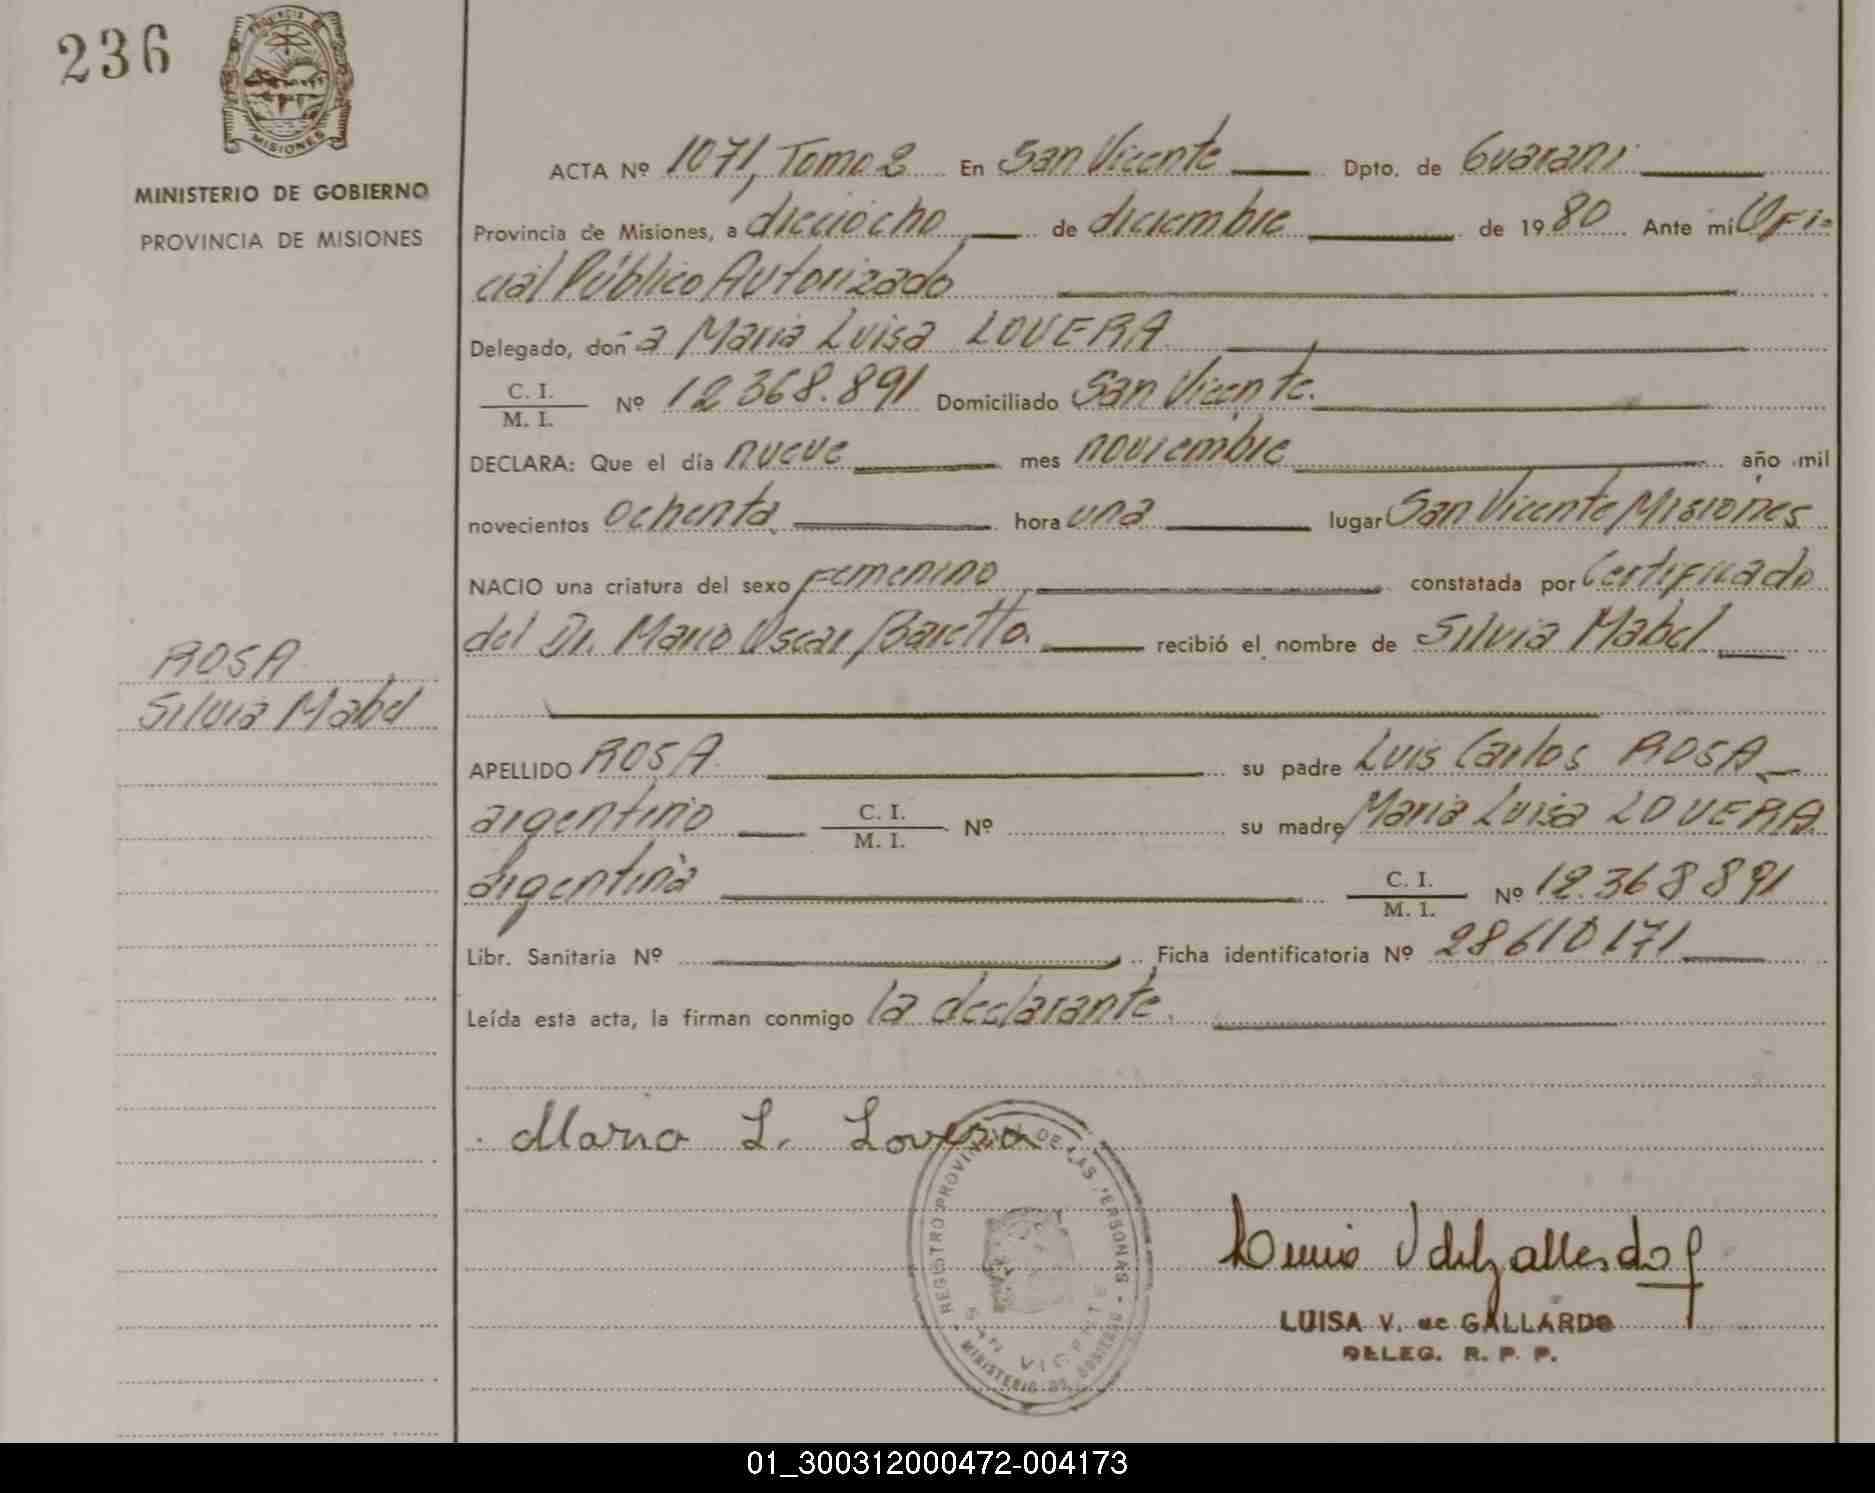 236
PROVINCIA DE
MISIONES
MINISTERIO DE GOBIERNO
PROVINCIA DE MISIONES
ROSA
Silvia Mabel
ACTA Nº 1071, Tomo 2 En San Vicente Dpto. de Guaraní
Provincia de Misiones, a dieciocho de diciembre de 1980 Ante mí Ofi-
cial Público Autorizado
Delegado, doña Maria Luisa LOVERA
C. I.
M. I.
Nº 12.368.891 Domiciliado San Vicente.
DECLARA: Que el día nueve mes noviembre año mil
novecientos ochenta hora una lugar San Vicente, Misiones
NACIO una criatura del sexo femenino constatada por Certificado
del Dr. Mario Oscar Baretto. recibió el nombre de Silvia Mabel
APELLIDO ROSA su padre Luis Carlos ROSA
argentino C. I. / M. I. Nº su madre Maria Luisa LOVERA
argentina C. I. / M. I. Nº 12.368891
Libr. Sanitaria Nº Ficha identificatoria Nº 28610171
Leída esta acta, la firman conmigo la declarante.
Maria L. Lovera
REGISTRO PROVINCIAL DE LAS PERSONAS
SAN VICENTE
MINISTERIO DE GOBIERNO
LUISA V. de GALLARDO
DELEG. R. P. P.
01_300312000472-004173